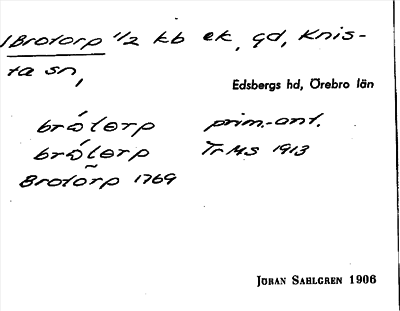 1 Brotorp 1/2 kb ek, gd, Knis-
ta sn,
Edsbergs hd, Örebro län
brótorp prim.-ant.
brótorp Tr MS 1913
Brotorp 1769
JÖRAN SAHLGREN 1906